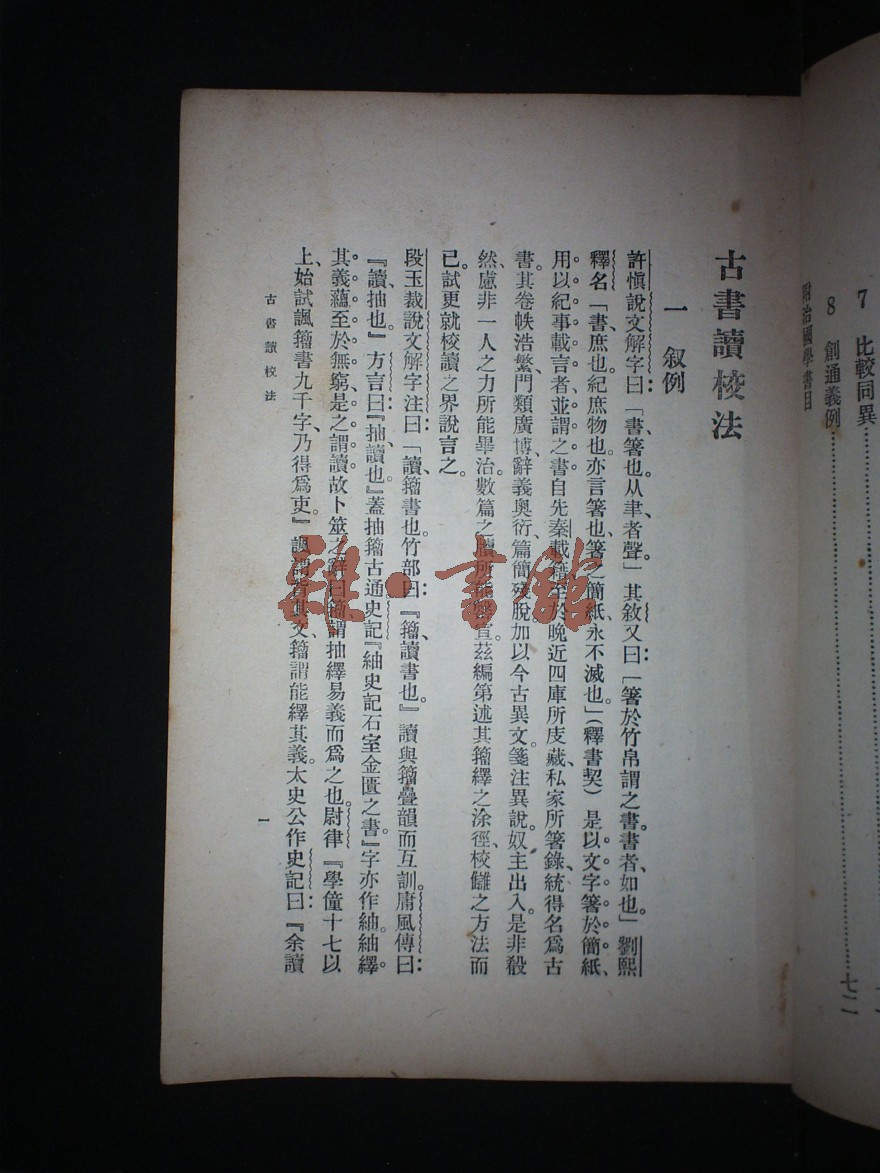 7 比較同異……………
8 創通義例……………七二
附治國學書目
古書讀校法
一 叙例
許愼說文解字曰：「書、箸也。从聿、者聲。」其敘又曰：「箸於竹帛謂之書。書者、如也。」劉熙
釋名「書、庶也。紀庶物也。亦言箸也、箸之簡紙、永不滅也」（釋書契） 是以文字箸於簡紙、
用以紀事載言者、並謂之書。自先秦載籍、至於晚近四庫所庋藏、私家所箸錄、統得名爲古
書。其卷帙浩繁、門類廣博、辭義奧衍、篇簡殘脫、加以今古異文。箋注異說。奴主出入。是非殽
然。慮非一人之力所能畢治。數篇之牘所能 宣。茲編第述其籀繹之涂徑、校讎之方法而
已。試更就校讀之界說言之。
段玉裁說文解字注曰：「讀、籀書也。竹部曰：『籀、讀書也。』讀與籀疊韻而互訓。庸風傳曰：
『讀、抽也。』方言曰：『抽、讀也。』蓋抽籀古通。史記『紬史記石室金匱之書。』字亦作紬。紬繹
其義蘊、至於無窮、是之謂讀。故卜筮之辭曰籀、謂抽繹易義而爲之也。尉律『學僮十七以
上、始試諷籀書九千字、乃得爲吏。』諷謂背其文、籀謂能繹其義。太史公作史記曰：『余讀
古書讀校法
一
雜·書館